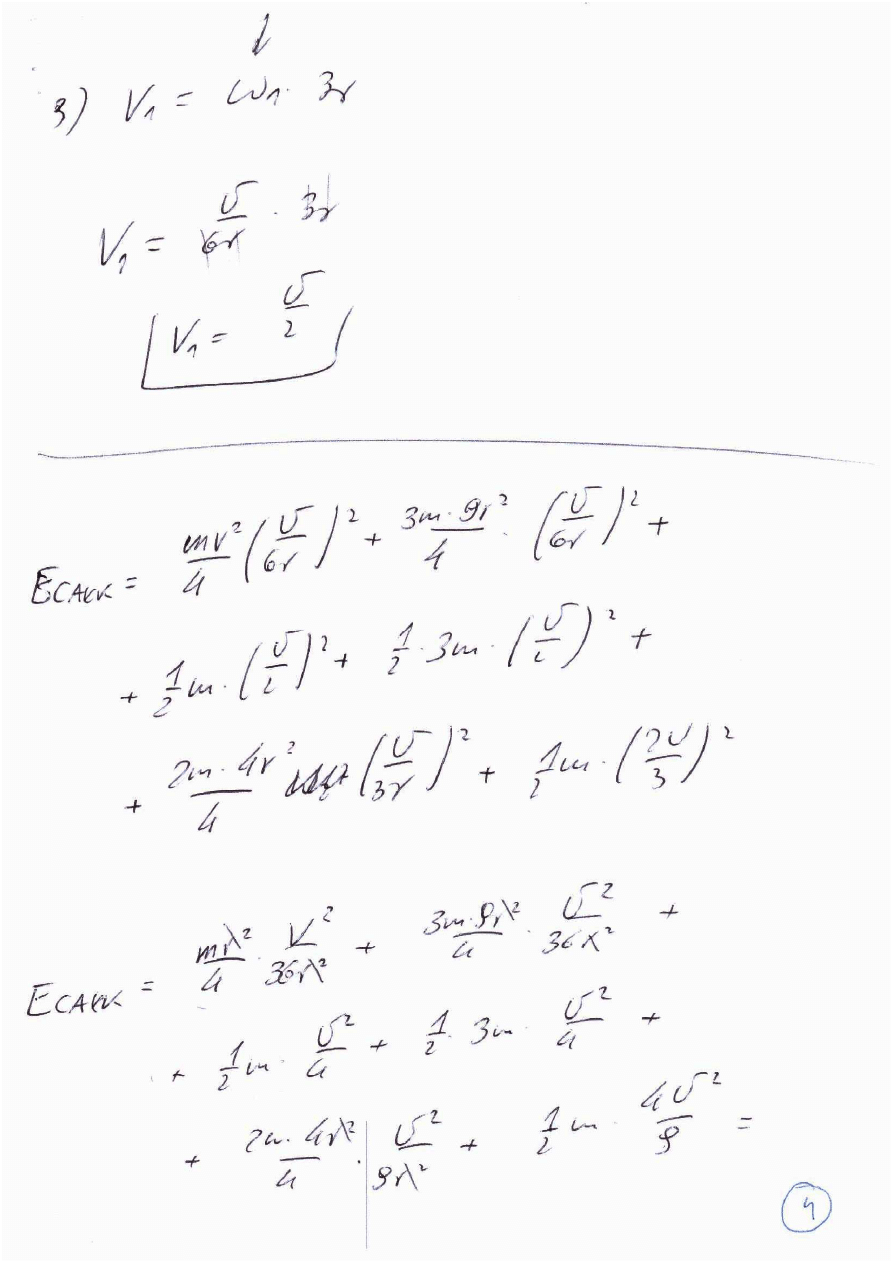 3) V₁ = ω₁ · 3r
V₁ = υ/6r · 3r
V₁ = υ/2
Eсакк = mr²/4 (υ/6r)² + 3m·9r²/4 · (υ/6r)² +
+ 1/2 m · (υ/2)² + 1/2 · 3m · (υ/2)² +
+ 2m·4r²/4 (υ/3r)² + 1/2 m · (2υ/3)²
Eсакк = mr²/4 · V²/36r² + 3m·9r²/4 · υ²/36r² +
+ 1/2 m · υ²/4 + 1/2 · 3m · υ²/4 +
+ 2m·4r²/4 · υ²/9r² + 1/2 m · 4υ²/9 =
4